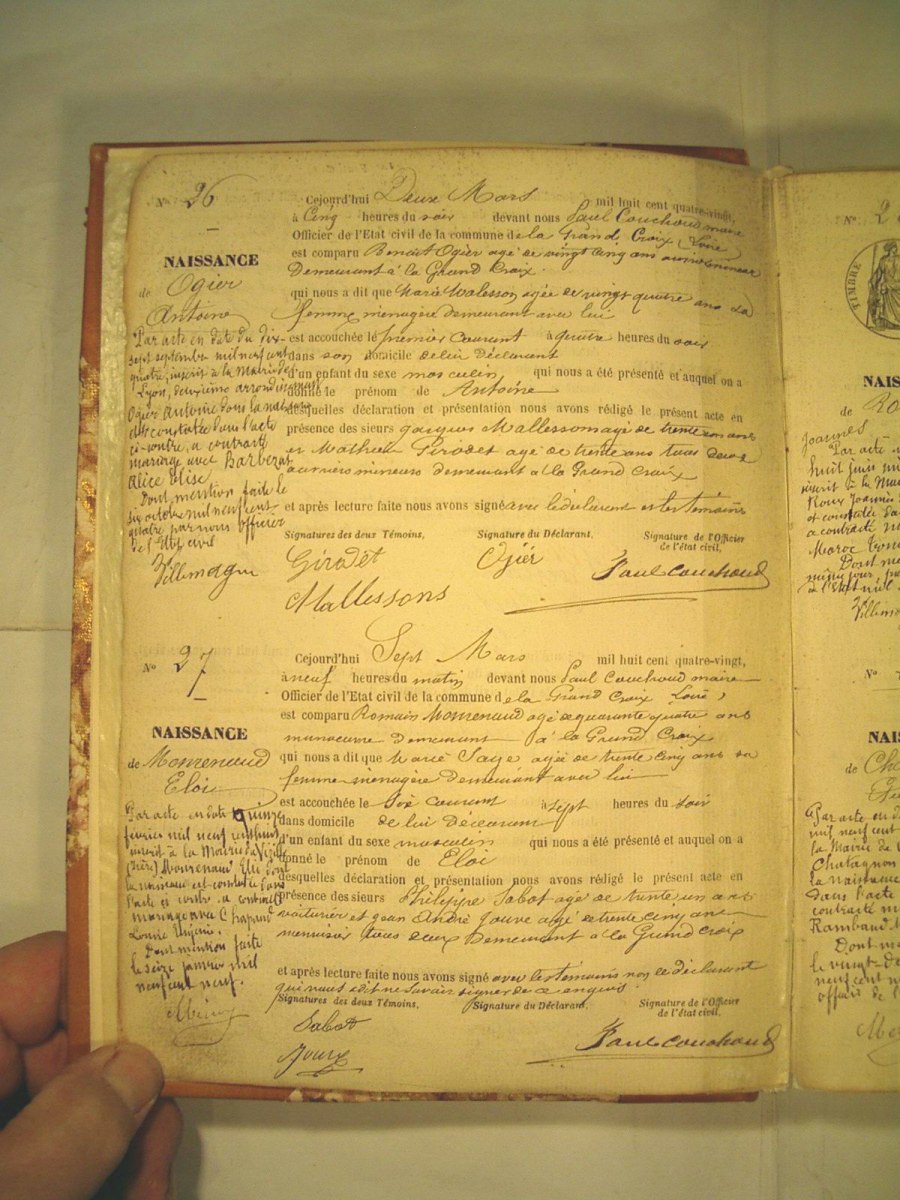 N° 26
NAISSANCE
de Ogier
Antoine
Par acte en date du dix-
sept septembre mil neuf cent
quatre, inscrit à la Mairie de
Lyon, deuxième arrondissement
Ogier Antoine dont la nais
est constatée dans l'acte
ci-contre, a contracté
mariage avec Barbezat
Alice Elise
Dont mention faite le
six octobre mil neuf cent
quatre par nous officier
de l'Etat civil
Villemagne
Cejourd'hui Deux Mars mil huit cent quatre-vingt,
à Cinq heures du soir devant nous Paul Couchoud maire
Officier de l'Etat civil de la commune de la Grand Croix (Loire
est comparu Benoit Ogier agé de vingt cinq ans ouvrier mineur
Demeurant à la Grand Croix.
qui nous a dit que Marie Malesson agée de vingt quatre ans sa
femme ménagère demeurant avec lui
est accouchée le premier courant à quatre heures du soir
dans son domicile de lui déclarant
d'un enfant du sexe masculin qui nous a été présenté et auquel on a
donné le prénom de Antoine
desquelles déclaration et présentation nous avons rédigé le présent acte en
présence des sieurs Jacques Mallesson agé de trente ans
et Mathieu Girodet agé de trente ans tous deux
ouvriers mineurs demeurant à la Grand Croix
et après lecture faite nous avons signé avec le déclarant et les témoins
Signatures des deux Témoins, Signature du Déclarant, Signature de l'Officier
de l'état civil,
Girodet Ogier Paul Couchoud
Mallessons
N° 27
NAISSANCE
de Monrenaud
Eloi
Par acte en date quinze
février mil neuf cent
inscrit à la Mairie de
(Isère) Monrenaud Eloi dont
la naissance est constatée dans
l'acte ci contre a contracté
mariage avec
Dont mention faite
le seize janvier mil
neuf cent neuf.
Cejourd'hui Sept Mars mil huit cent quatre-vingt,
à neuf heures du matin devant nous Paul Couchoud maire
Officier de l'Etat civil de la commune de la Grand Croix Loire,
est comparu Romain Monrenaud agé de quarante quatre ans
manoeuvre demeurant à la Grand Croix
qui nous a dit que Marie Sage agée de trente cinq ans sa
femme ménagère demeurant avec lui
est accouchée le Six courant à sept heures du soir
dans domicile de lui déclarant
d'un enfant du sexe masculin qui nous a été présenté et auquel on a
donné le prénom de Eloi
desquelles déclaration et présentation nous avons rédigé le présent acte en
présence des sieurs Philippe Sabot agé de trente un ans
voiturier et Jean André Jouve agé de trente cinq ans
menuisier tous deux demeurant à la Grand Croix
et après lecture faite nous avons signé avec les témoins non le déclarant
qui nous a dit ne savoir signer de ce enquis
Signatures des deux Témoins, Signature du Déclarant, Signature de l'Officier
de l'état civil,
Sabot
Paul Couchoud
N° 2
TIMBRE
NAIS
de Ro
Joannès
Par acte
huit juin
inscrit à la Mai
Roux Joannès
et constatée da
a contracté
Dont me
à l'Etat civil
N°
NAIS
de Cha
Par acte en d
mil neuf cent
la Mairie de
Chatagnon
la naissance
dans l'acte
contracté m
Rambaud
Dont me
le vingt-de
neuf cent